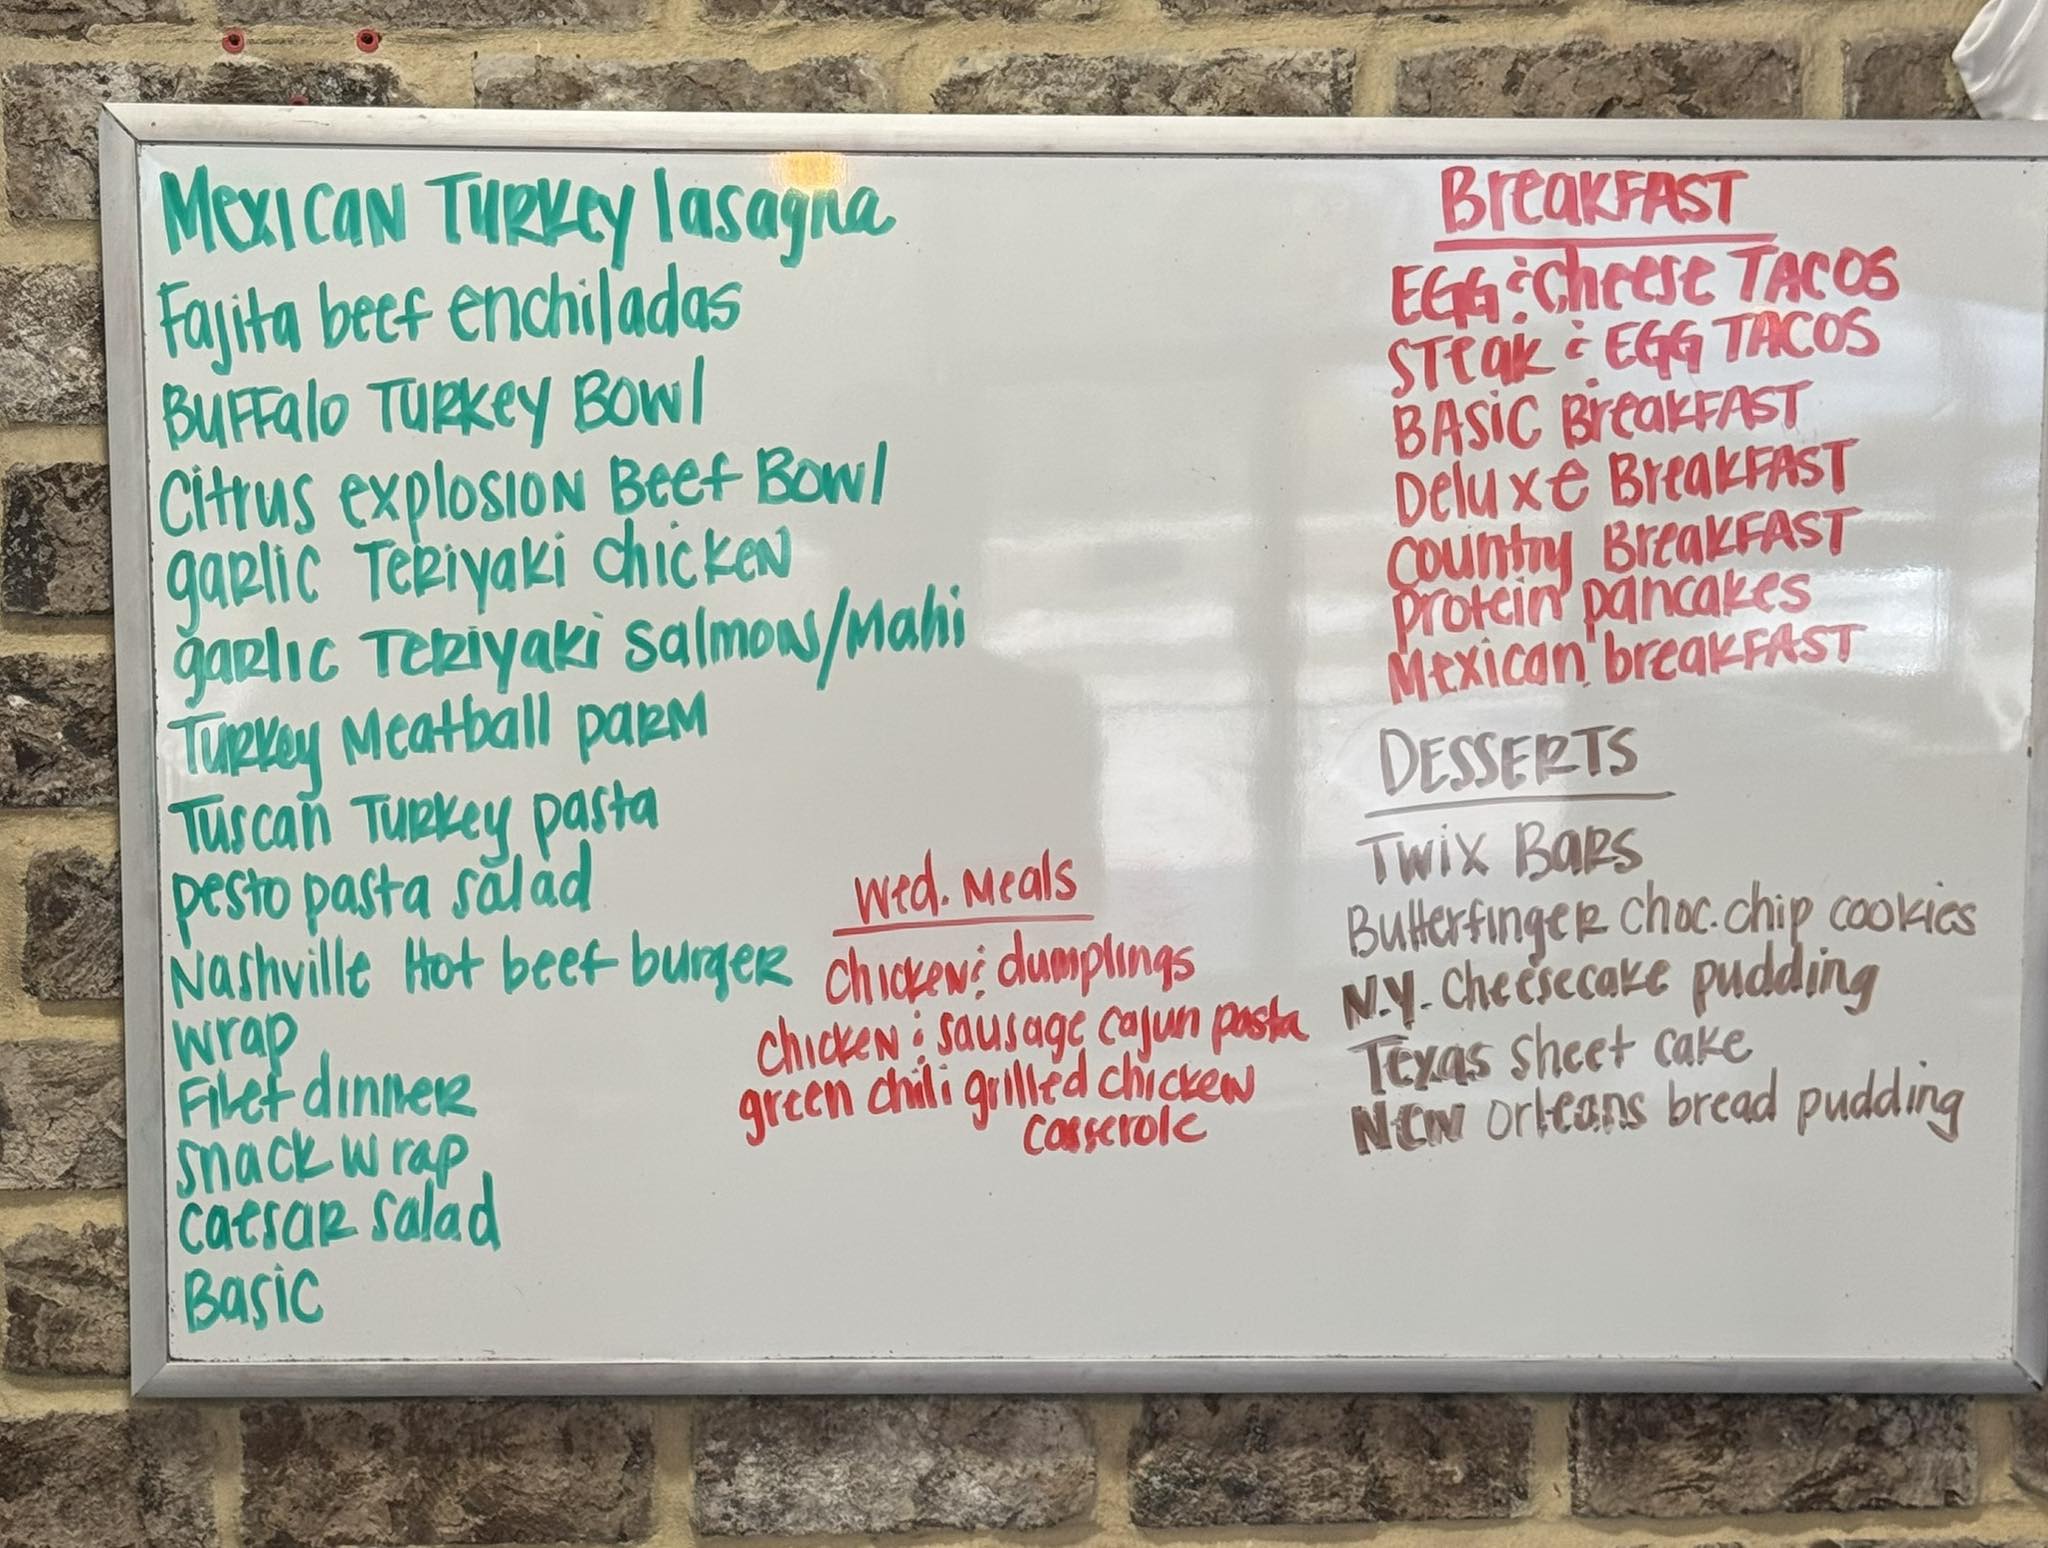 Mexican Turkey lasagna
Fajita beef enchiladas
Buffalo Turkey Bowl
Citrus explosion Beef Bowl
garlic Teriyaki chicken
garlic Teriyaki salmon/Mahi
Turkey Meatball parm
Tuscan Turkey pasta
pesto pasta salad
Nashville Hot beef burger
wrap
Filet dinner
snack wrap
caesar salad
Basic
Wed. Meals
chicken & dumplings
chicken & sausage cajun pasta
green chili grilled chicken
casserole
BreakFAST
EGG & Cheese TACOS
STeak & EGG TACOS
BASIC BreakFAST
Deluxe BreakFAST
country BreakFAST
protein pancakes
Mexican breakFAST
DESSERTS
Twix Bars
Butterfinger choc. chip cookies
N.Y. Cheesecake pudding
Texas sheet cake
New Orleans bread pudding